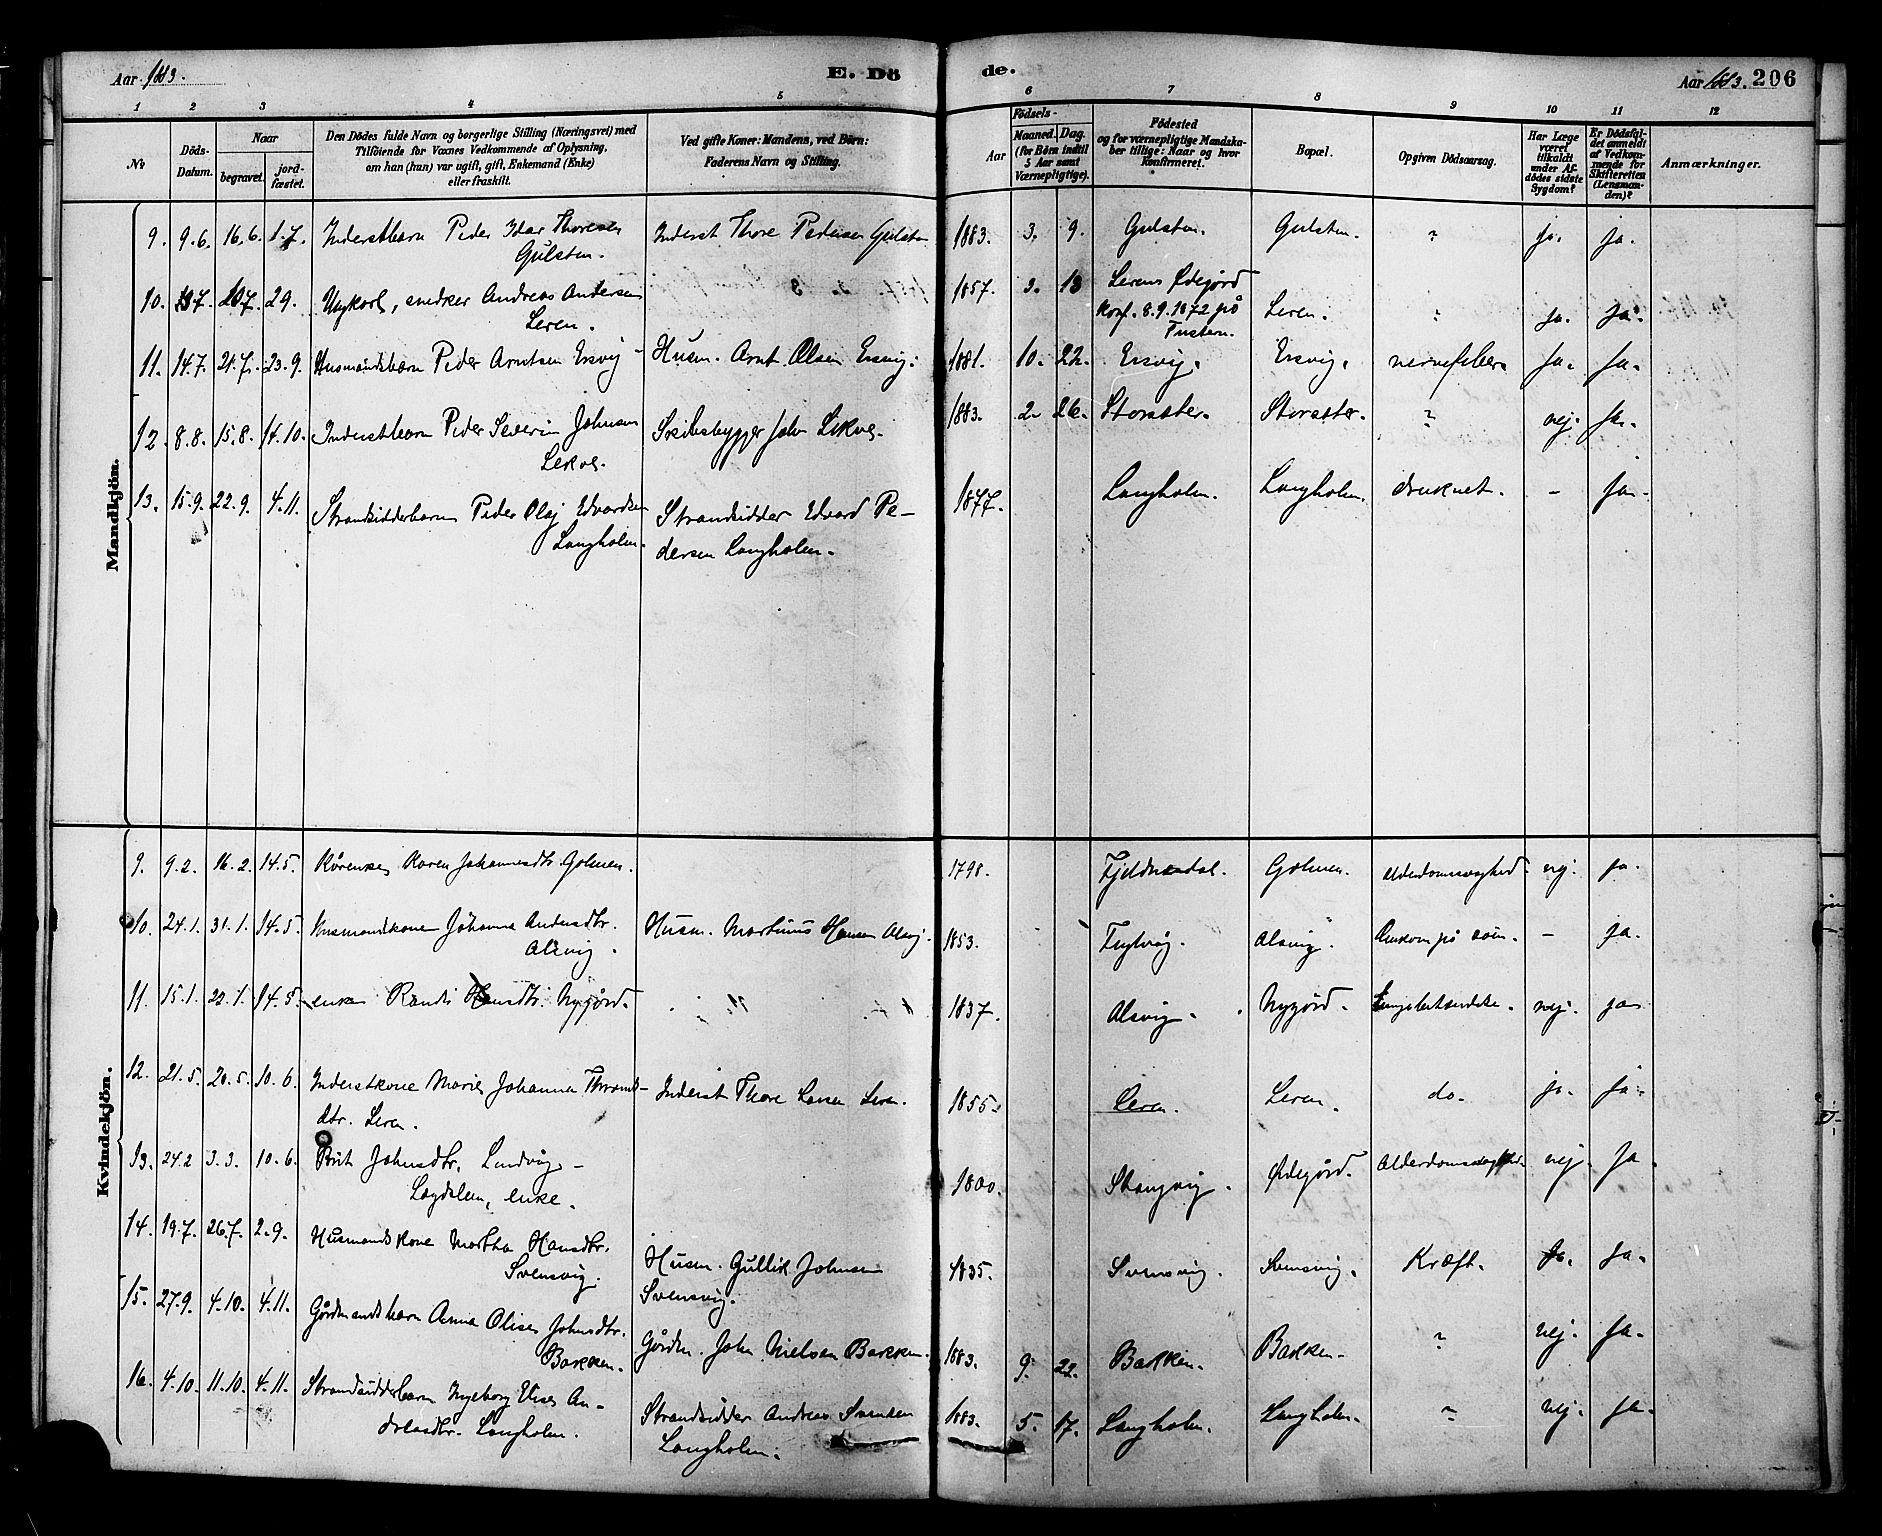 Aar 1883.
E. Dö
de.
Aar 1883. 206
1 2 3 4 5 6 7 8 9 10 11 12
No
Döds-
Datum.
Naar
begravet.
jord-
fæstet.
Den Dödes fulde Navn og borgerlige Stilling (Næringsvei) med
Tilföiende for Voxnes Vedkommende af Oplysning,
om han (hun) var ugift, gift, Enkemand (Enke)
eller fraskilt.
Ved gifte Koner: Mandens, ved Börn:
Faderens Navn og Stilling.
Aar
Födsels-
Maaned. Dag.
(for Börn indtil
5 Aar samt
Værnepligtige).
Födested
og for værnepligtige Mandska-
ber tillige: Naar og hvor
konfirmeret.
Bopæl.
Opgiven Dödsaarsag.
Har Læge
været
tilkaldt
under Af-
dödes sidste
Sygdom?
Er Dödsfal-
det anmeldt
af Vedkom-
mende for
Skifteretten
(Lensman-
den)?
Anmærkninger.
Mandkjön.
9. 9.6. 16.6. 1.7. Inderstbarn Peder Idar Thoresen Inderst Thore Pedersen Gulsten 1883. 3. 9. Gulsten. Gulsten. ? ja. ja.
Gulsten.
10. 13.7. 20.7. 29. Ungkarl, snedker Andreas Andersen 1857. 3. 13 Lerens Ødegård
Leren. Konf. 8.9.1872 på Leren. ? ja. ja.
Tusteren.
11. 14.7. 21.7. 23.9. Husmandsbarn Peder Arntsen Ersvig Husm. Arnt Olsen Ersvig. 1881. 10. 22. Ersvig. Ersvig. nervefeber ja. ja.
12. 8.8. 15.8. 14.10. Inderstbarn Peder Severin Johnsen Skibsbygger John Lekve. 1883. 2. 26. Storsæter. Storsæter. ? nej. ja.
Lekve.
13. 15.9. 22.9. 4.11. Strandsidderbarn Peder Olaj Edvardsen Strandsidder Edvard Pe- 1877. Langholm. Langholm. druknet. - ja.
Langholm. dersen Langholm.
Kvindekjön.
9. 9.2. 16.2. 14.5. Kårenke Karen Johannesdtr. Golmen. 1798. Fjeldnesdal. Golmen. Alderdomssvaghed. nej. ja.
10. 24.1. 31.1. 14.5. Husmandskone Johanna Andersdtr. Husm. Martinus Hansen Alsvig. 1853. Fuglvåg. Alsvig. Omkom på søen. - ja.
Alsvig.
11. 15.1. 22.1. 14.5. enke Randi Hansdtr. Nygård. 1837. Alsvig. Nygård. Lungebetændelse. nej. ja
12. 21.5. 20.5. 10.6. Inderstkone Marie Johanna Thronds- Inderst Thore Larsen Leren. 1855. Leren. Leren. do. ja. ja.
dtr. Leren.
13. 24.2 3.3. 10.6. Brit Johnsdtr. Lundvig- 1800. Stangvig. Ødegård. Alderdomssvaghed. nej ja.
enke.
14. 19.7. 26.7. 2.9. Husmandskone Martha Hansdtr. Husm. Gullik Johnsen 1835. Svensvig. Svensvig. Kræft. ja. ja.
Svensvig. Svensvig.
15. 27.9. 4.10. 4.11. Gårdmandsbarn Anna Olise Johnsdtr. Gårdm. John Nielsen Bakken. 1883. 9. 22. Bakken. Bakken. ? nej. ja.
Bakken.
16. 4.10. 11.10. 4.11. Strandsidderbarn Ingeborg Elise An- Strandsidder Andreas Svendsen 1883. 5. 17. Langholm. Langholm. ? nej. ja.
dreasdtr. Langholm. Langholm.